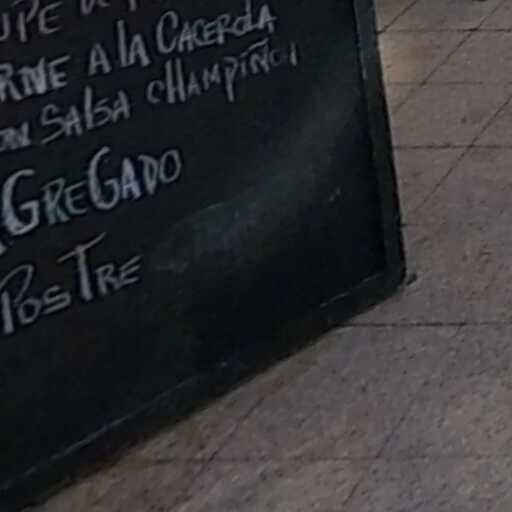 RNE A LA CACEROLA
ON SALSA CHAMPIÑON
GREGADO
POSTRE